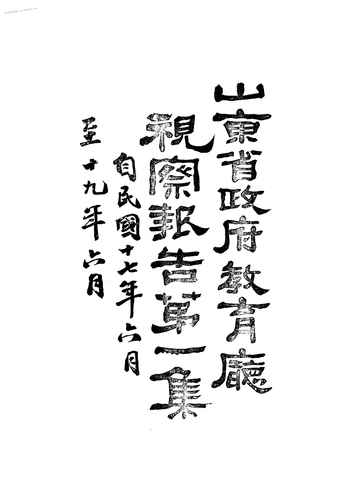 山東省政府教育廳
視察報告第一集
自民國十七年六月
至十九年六月